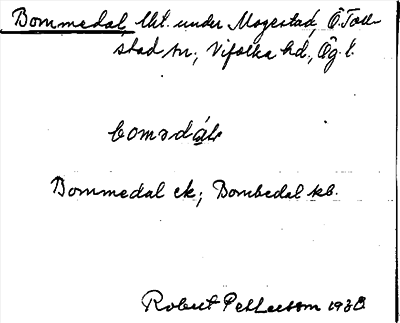 Bommedal, lht. under Mogestad, Ö. Toll-
stad sn; Vifolka hd, Ög. l.
bomədɑ̀l
Bommedal ek; Bombedal kb.
Robert Pettersson 1930